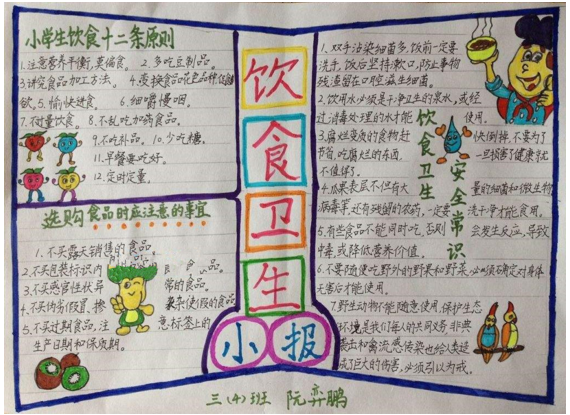 小学生饮食十二条原则
1.注意营养平衡,莫偏食。 2.多吃豆制品。
3.讲究食品加工方法。 4.变换食品花色品种促食
欲。5.愉快进食。 6.细嚼慢咽。
7.不过量饮食。 8.不乱吃加药食品。
9.不吃补品。 10.少吃糖。
11.早餐要吃好。
12.定时定量。
选购食品时应注意的事宜
1.不买露天销售的食品。
2.不买包装标识内 食品。
3.不买感官性状异 常的食品。
4.不买伪劣假冒、掺 杂使假的食品
5.不买过期食品,注 意标签上的
生产日期和保质期。
饮
食
卫
生
小报
饮食卫生
安全常识
1.双手沾染细菌多,饭前一定要
洗手,饭后坚持漱口,防止事物
残渣留在口腔滋生细菌。
2.饮用水必须是干净卫生的泉水,或经
过消毒处理的水才能 使用。
3.腐烂变质的食物赶 快倒掉,不要为了
节省,吃腐烂的东西, 一旦损害了健康就
不值得了。
4.瓜果表层不但有大 量的细菌和微生物
病毒等,还有残留的农药,一定要 洗干净才能食用。
5.有些食品不能同时吃,否则 会发生反应,导致
中毒,或降低营养价值。
6.不要随便吃野外的野果和野菜,必须确定对身体
无害后才能使用。
7.野生动物不能随意使用,保护生态
环境是我们每人的共同义务,非典
和禽流感传染也给人类造
成了巨大的伤害,必须引以为戒。
三(4)班 阮弈鹏